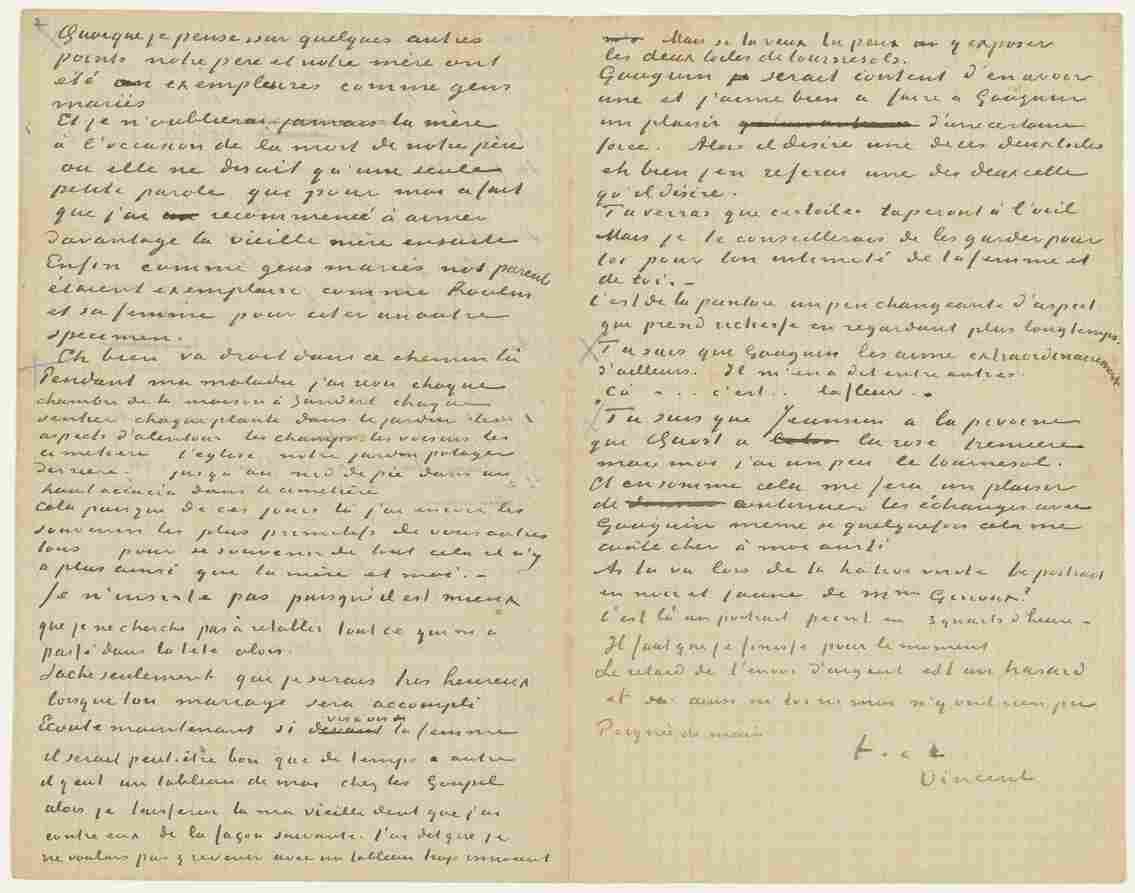 2
Quoique je pense sur quelques autres
points notre père et notre mère ont
été exemplaires comme gens
mariés
Et je n'oublierai jamais la mère
à l'occasion de la mort de notre père
où elle ne disait qu'une seule
petite parole qui pour moi a fait
que j'ai recommencé à aimer
davantage la vieille mère ensuite
Enfin comme gens mariés nos parents
étaient exemplaires comme Roulin
et sa femme pour citer un autre
specimen.
Eh bien va droit dans ce chemin là
Pendant ma maladie j'ai revu chaque
chambre de la maison à Zundert chaque
sentier chaque plante dans le jardin les
aspects d'alentour les champs les voisins le
cimetière l'église notre jardin potager
derrière – jusqu'au nid de pie dans un
haut acacia dans le cimetière
Cela puisque de ces jours là j'ai encore les
souvenirs les plus primitifs de vous autres
tous pour se souvenir de tout cela il n'y
a plus ainsi que la mère et moi. –
Je n'insiste pas puisqu'il est mieux
que je ne cherche pas à retablir tout ce qui m'a
passé dans la tête alors.
Sache seulement que je serais très heureux
lorsque ton mariage sera accompli
Ecoute maintenant si devant vis à vis de ta femme
il serait peut-être bon que de temps à autre
il y eut un tableau de moi chez les Goupil
alors je laisserai là ma vieille dent que j'ai
contre eux de la façon suivante. J'ai dit que je
ne voulais pas y revenir avec un tableau trop innocent
Mais si tu veux tu peux y exposer
les deux toiles de tournesols.
Gauguin serait content d'en avoir
une et j'aime bien à faire à Gauguin
un plaisir d'une certaine
force. Alors il désire une de ces deux toiles
eh bien j'en referai une des deux celle
qu'il désire.
Tu verras que ces toiles taperont à l'oeil
Mais je te conseillerais de les garder pour
toi pour ton intimité de ta femme et
de toi. –
C'est de la peinture un peu changeante d'aspect
qui prend richesse en regardant plus longtemps.
Tu sais que Gauguin les aime extraordinairement
d'ailleurs. Il m'en a dit entre autres.
„ça – .. c'est .. la fleur. „
Tu sais que Jeannin a la pivoine
que Quost a la rose trémière
mais moi j'ai un peu le tournesol.
Et en somme cela me fera un plaisir
de continuer les échanges avec
Gauguin même si quelquefois cela me
coûte cher à moi aussi
As tu vu lors de ta hative visite le portrait
en noir et jaune de Mme Ginoux?
C'est là un portrait peint en 3 quarts d'heure –
Il faut que je finisse pour le moment
Le retard de l'envoi d'argent est un hasard
et ni toi ni moi n'y ont rien pu
Poignée de main
t. à t.
Vincent